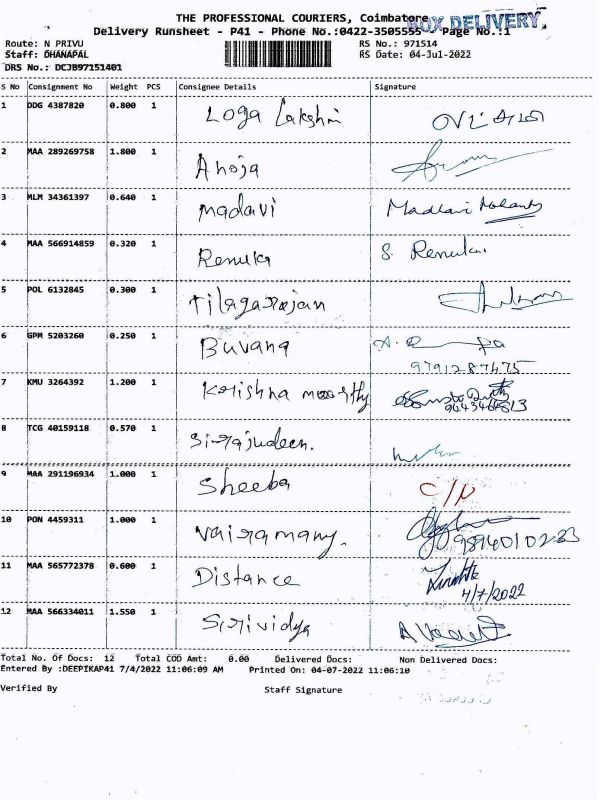 THE PROFESSIONAL COURIERS, Coimbatore
BOX DELIVERY
Delivery Runsheet - P41 - Phone No.:0422-3505555 Page No.:1
Route: N PRIVU RS No.: 971514
Staff: DHANAPAL RS Date: 04-Jul-2022
DRS No.: DCJB97151401
S No Consignment No Weight PCS Consignee Details Signature
1 DDG 4387820 0.800 1 Loga Lakshmi
2 MAA 289269758 1.800 1 Anoja
3 MLM 34361397 0.640 1 Madavi
4 MAA 566914859 0.320 1 Renuka S. Renuka
5 POL 6132845 0.300 1 Tilagarajan
6 GPM 5203260 0.250 1 Buvana
9791287475
7 KMU 3264392 1.200 1 Krishna moorthy
8 TCG 40159118 0.570 1 Sirajudeen.
9 MAA 291196934 1.000 1 Sheeba C/N
10 PON 4459311 1.000 1 Vairamany.
9894010233
11 MAA 565772378 0.600 1 Distance
4/7/2022
12 MAA 566334011 1.550 1 Srividya
Total No. Of Docs: 12 Total COD Amt: 0.00 Delivered Docs: Non Delivered Docs:
Entered By :DEEPIKAP41 7/4/2022 11:06:09 AM Printed On: 04-07-2022 11:06:10
Verified By Staff Signature